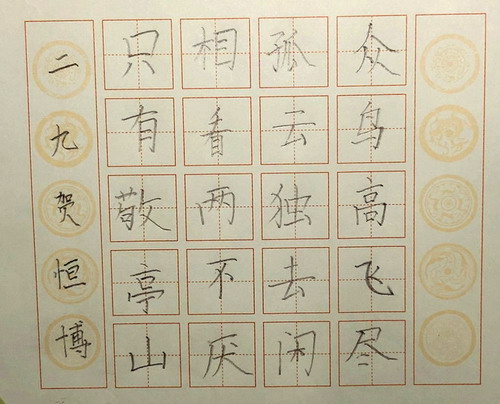 众鸟高飞尽
孤云独去闲
相看两不厌
只有敬亭山
二九贺恒博